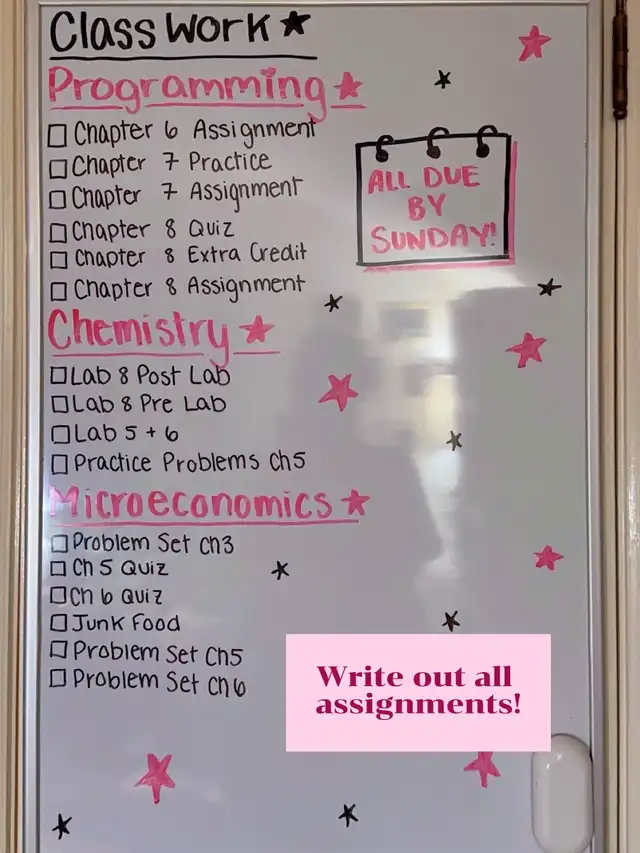 Class Work
Programming
Chapter 6 Assignment
Chapter 7 Practice
Chapter 7 Assignment
Chapter 8 Quiz
Chapter 8 Extra Credit
Chapter 8 Assignment
ALL DUE
BY
SUNDAY!
Chemistry
Lab 8 Post Lab
Lab 8 Pre Lab
Lab 5 + 6
Practice Problems Ch5
Microeconomics
Problem Set Ch3
Ch 5 Quiz
Ch 6 Quiz
Junk Food
Problem Set Ch5
Problem Set Ch6
Write out all
assignments!